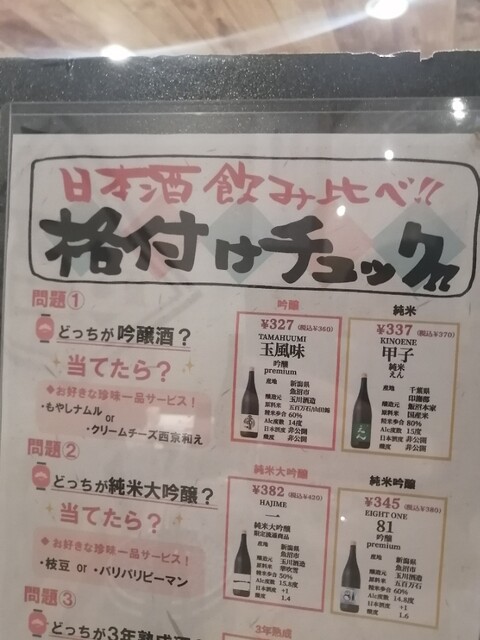 日本酒 飲み比べ!!
格付けチェック!!
問題①
どっちが吟醸酒？
当てたら？
◆お好きな珍味一品サービス！
・もやしナムル or
・クリームチーズ西京和え
吟醸
¥327 (税込¥360)
TAMAHUUMI
玉風味
吟醸
premium
産地 新潟県
魚沼市
醸造元 玉川酒造
原料米 五百万石/山田錦
精米歩合 60%
Alc度数 14度
日本酒度 非公開
酸度 非公開
純米
¥337 (税込¥370)
KINOENE
甲子
純米
えん
産地 千葉県
印旛郡
醸造元 飯沼本家
原料米 国産米
精米歩合 80%
Alc度数 15度
日本酒度 非公開
酸度 非公開
問題②
どっちが純米大吟醸？
当てたら？
◆お好きな珍味一品サービス！
・枝豆 or ・パリパリピーマン
純米大吟醸
¥382 (税込¥420)
HAJIME
一
純米大吟醸
限定流通商品
産地 新潟県
魚沼市
醸造元 玉川酒造
原料米 華吹雪
精米歩合 50%
Alc度数 15.8度
日本酒度 +1
酸度 1.4
純米吟醸
¥345 (税込¥380)
EIGHT ONE
81
吟醸
premium
産地 新潟県
魚沼市
醸造元 玉川酒造
原料米 五百万石
精米歩合 60%
Alc度数 15.8度
日本酒度 +1
酸度 1.6
問題③
どっちが3年熟成酒
3年熟成